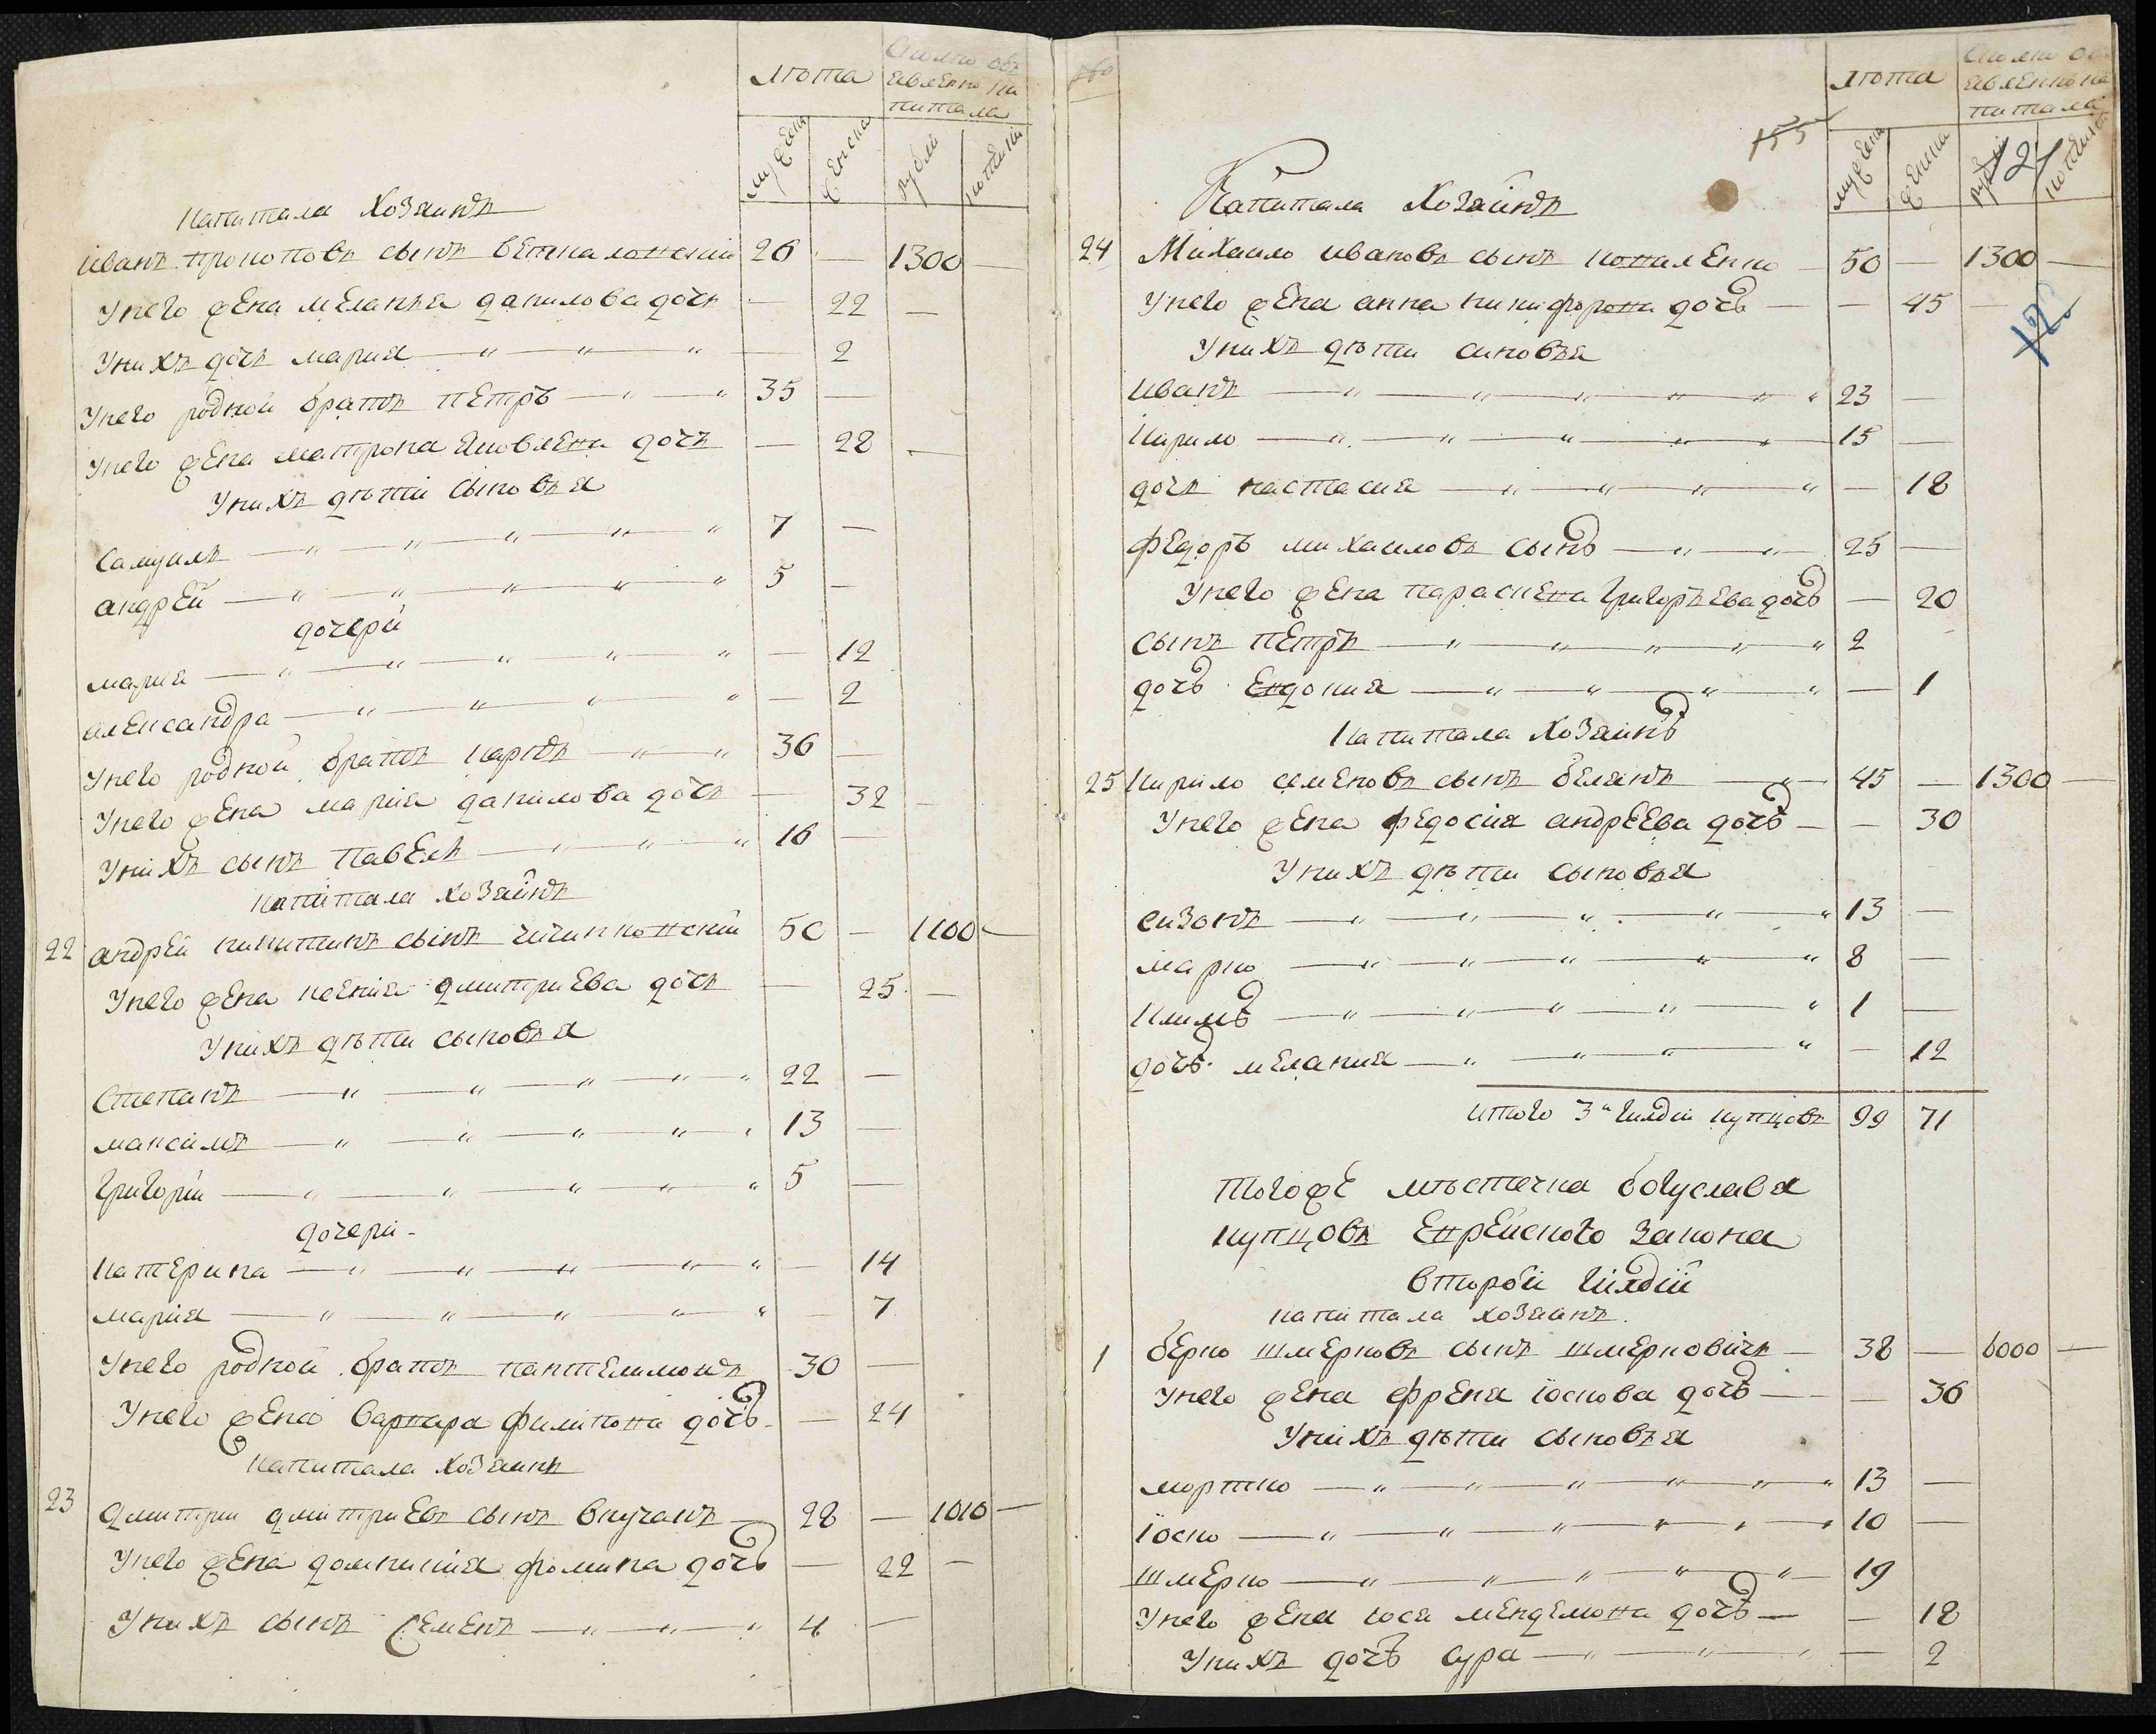 лѣта
Сколко объ
явлено ка
питала
мужеска
женска
рубли
копѣики
капитала хозаинъ
иванъ прокоповъ сынъ веткаловский 26 — 1300 —
унего жена меланья данилова дочь — 22 —
унихъ дочь мариа — 2
унего родной братъ петръ — 35 —
унего жена матрона яковлева дочь — 28 —
унихъ дѣти сыновья
Самуилъ — 7 —
андрей — 5 —
дочери
мариа — 12
александра — 2
унего родной братъ карпъ — 36 —
унего жена мариа данилова дочь — 32 —
унихъ сынъ павелъ — 16 —
капитала хозаинъ
22 андрей никитинъ сынъ чичикловский 50 — 1100 —
унего жена ксения дмитриева дочь — 25 —
унихъ дѣти сыновья
Степанъ — 22 —
максимъ — 13 —
григорий — 5 —
дочери
катерина — 14
мариа — 7
унего родной братъ пантелимонъ 30 —
унего жена варвара филипова дочъ — 24
капитала хозаинъ
23 дмитрии дмитриевъ сынъ внучанъ 28 — 1010 —
унего жена домникия фомина дочъ — 22 —
унихъ сынъ Семенъ — 4 —
160
155
лѣта
Сколко об
явленно ка
питала
мужеска
женска
рубли
копѣикъ
121
122
Капитала хозаинъ
24 Михаило ивановъ сынъ коваленко — 50 — 1300 —
унего жена анна никифорова дочъ — — 45
унихъ дѣти синовья
иванъ — 23 —
кирило — 15 —
дочь настасия — 18
федоръ михаиловъ сынъ — 25 —
унего жена параскева григорьева дочъ — 20
сынъ петръ — 2
дочъ евдокия — 1
капитала хозаинъ
25 кирило семеновъ сынъ белянъ — 45 — 1300 —
унего жена федосия андреева дочъ — — 30
унихъ дѣти сыновья
сизонъ — 13 —
марко — 8 —
климъ — 1 —
дочъ мелания — 12
итого 3й гилдии купцовъ 99 71
тогоже мѣстечка богуслава
купцовъ еврейского закона
второй гилдии
капитала хозаинъ
1 берко шмерковъ сынъ шмерковичъ — 38 — 6000 —
унего жена фрейа иоскова дочъ — — 36
унихъ дѣти сыновья
мортко — 13 —
иоско — 10 —
шмерко — 19
унего жена хося менделюва дочъ — — 18
унихъ дочъ сура — 2